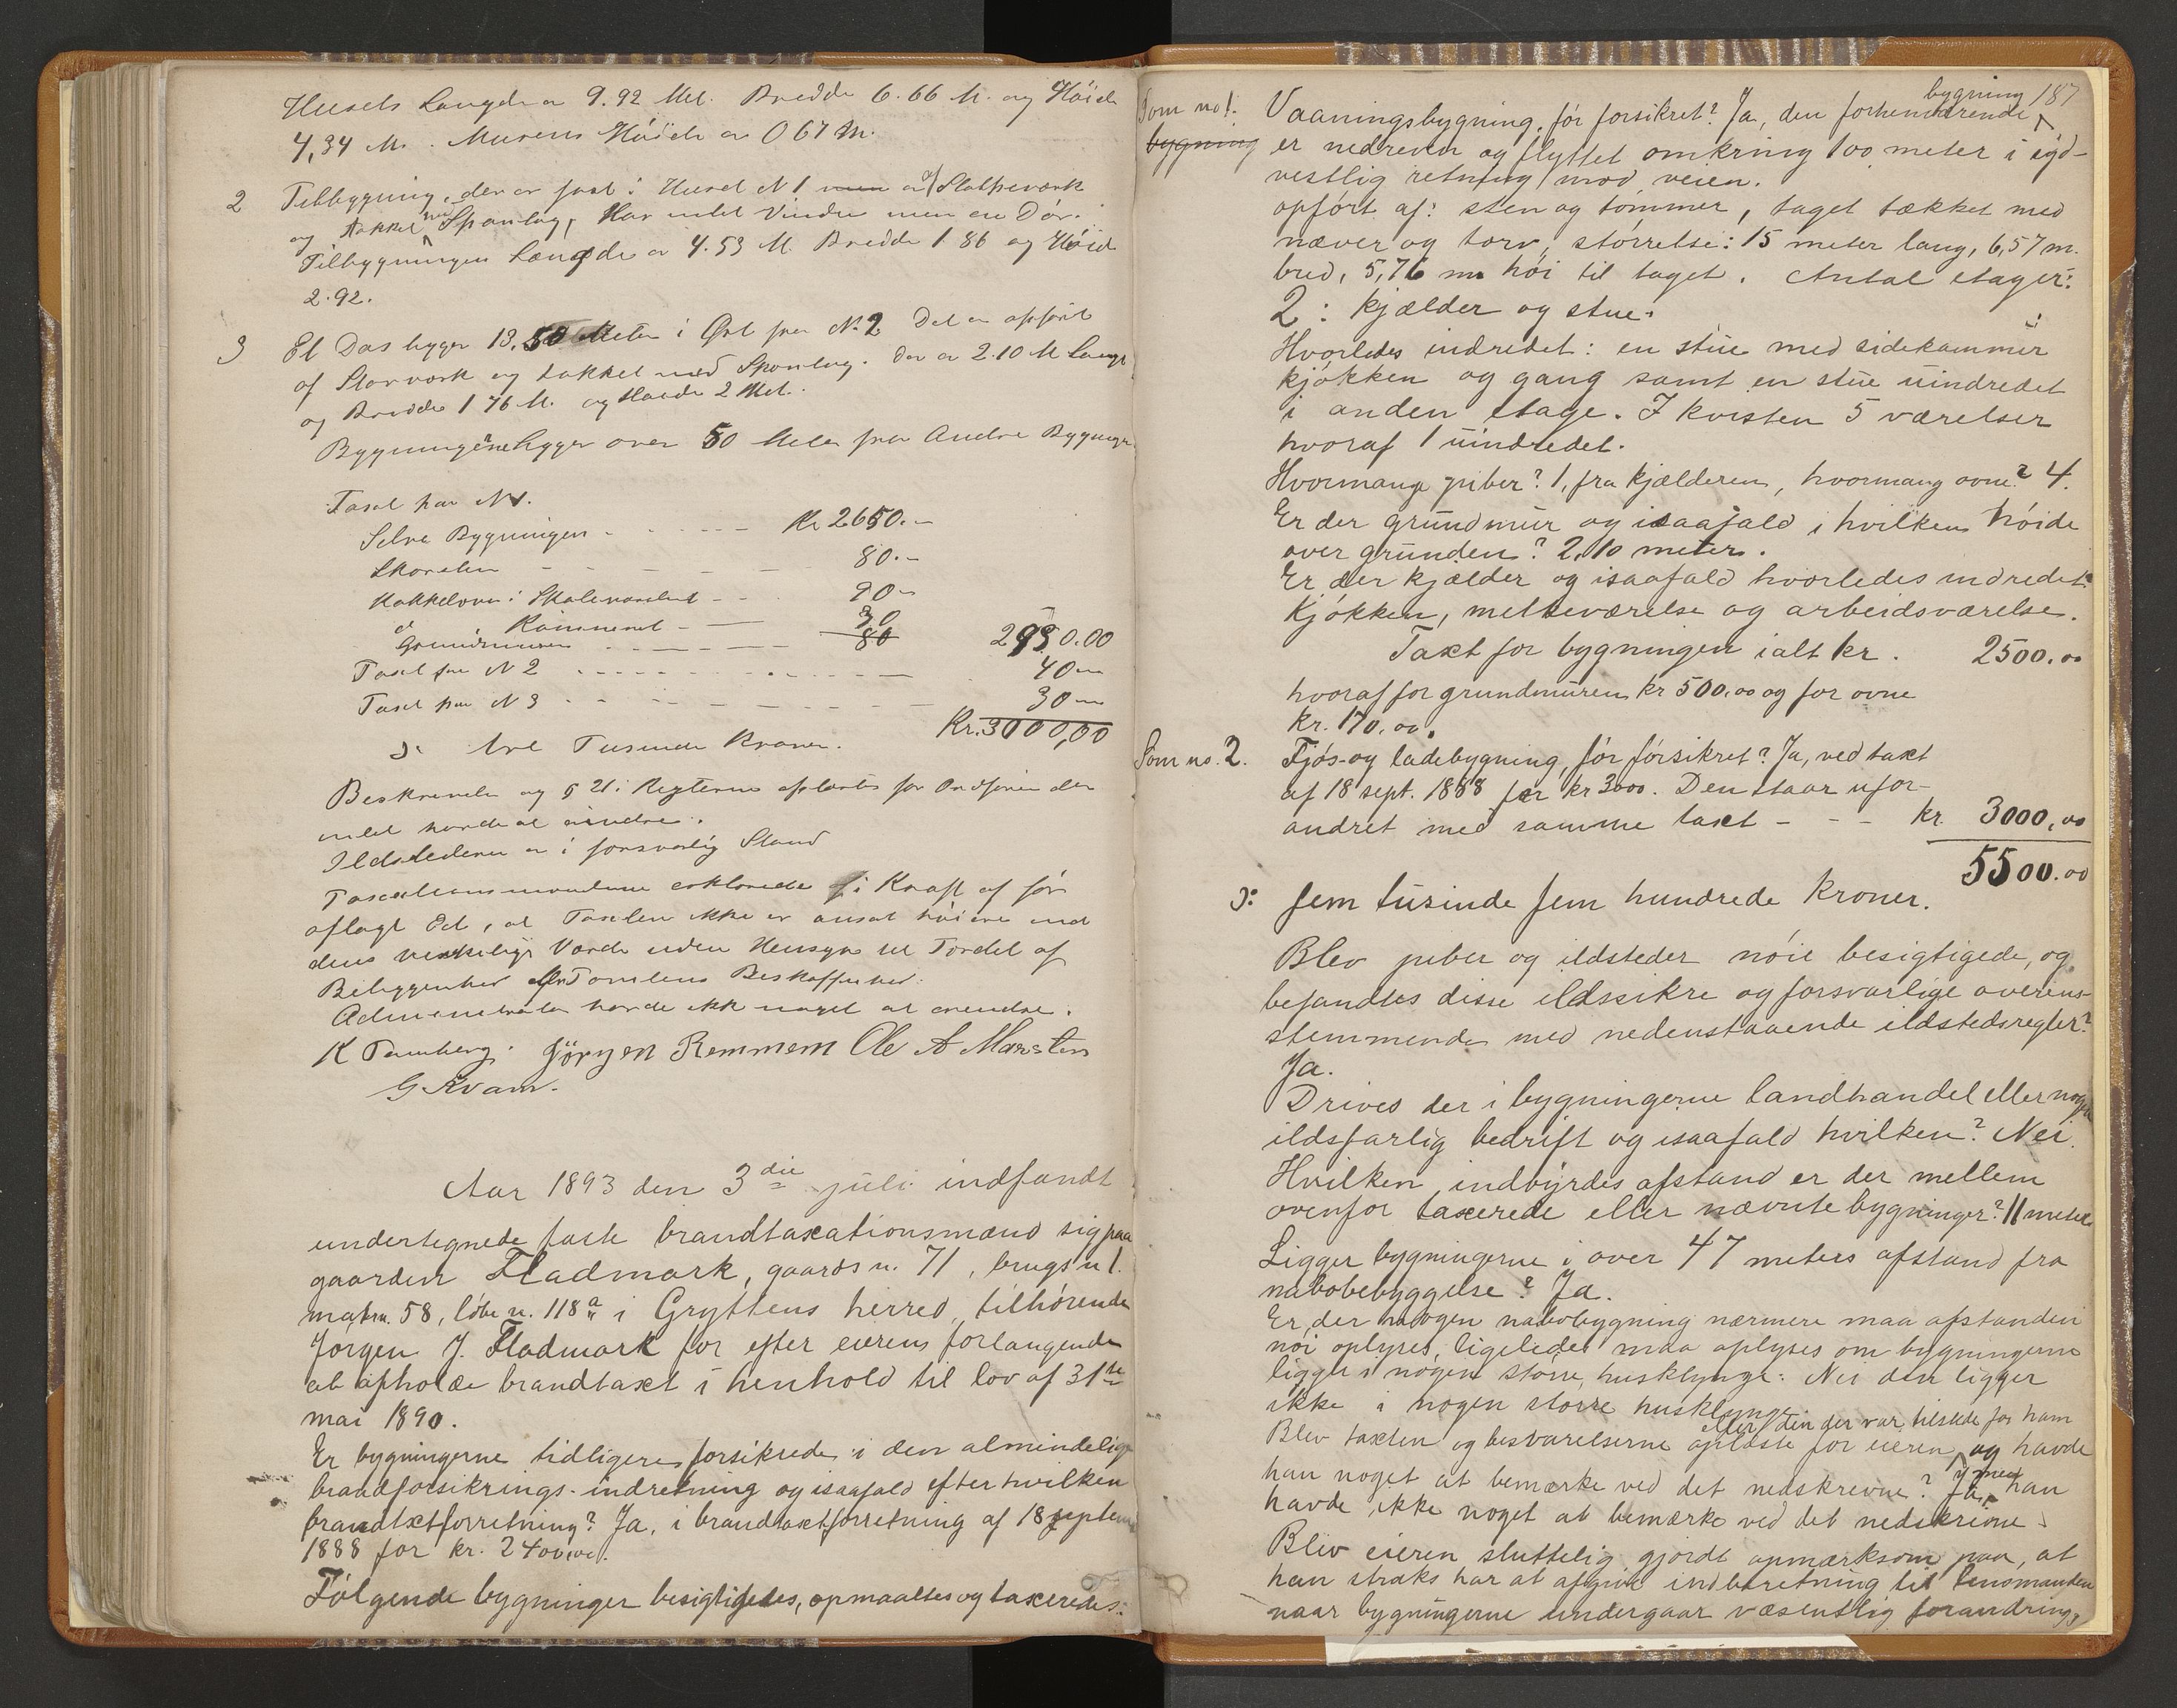 Husets Længde er 9.92 Met. Bredde 6.66 M. og Höide
4,34 M. Murens Höide er 0 67 M.
2 Tilbygning, der er fast i Huset N 1 er af
og tækket med Spontag, Har intet Vindu men en Dör.
Tilbygningen Længde er 4.53 M. Bredde 1 86 og Höide
2.92.
3 Et Das ligger 13,50 Meter i Öst fra N. 2 Det er opfört
af Stavværk og tækket med Spontag. der er 2.10 M Langt
og Bredde 1 76 M. og Höide 2 Met.
Bygningerne ligger over 50 Meter fra Andre Bygninger
Taxt for N 1.
Selve Bygningen - - - Kr 2650.-
Skorsten - - - 80.-
Kakkelovn i - - 90-
d Kammeret - - 30
Grundmuren - - - 80 2930.00
Taxt for N 2 - - - 40-
Taxt for N 3 - - - 30-
Kr. 3000,00
ɔ: tre Tusinde Kroner.
Beskrivelse og § 21 i Reglerne oplæstes for Eieren der
intet havde at erindre.
Ildstederne er i forsvarlig Stand
Taxationsmændene erklærede i Kraft af för
aflagt Ed, at Taxten ikke er ansat höiere end
dens virkelige Værdi uden Hensyn til Fordel af
Beliggenhed eller Tomtens Beskaffenhed.
Administrator havde ikke noget at erindre.
K Tamberg. Jörgen Remmem Ole A Marsten
G Kvam.
Aar 1893 den 3die juli indfandt
undertegnede faste brandtaxationsmænd sig paa
gaarden Fladmark, gaards n. 71, brugs n 1.
matr n. 58, löbe n. 118a i Gryttens herred, tilhörende
Jörgen J. Fladmark for efter eierens forlangende
at afholde brandtaxt i henhold til lov af 31te
mai 1890.
Er bygningerne tidligere forsikrede i den almindelige
brandforsikrings-indretning og isaafald efter hvilken
brandtaxtforretning? Ja, i brandtaxtforretning af 18 septem
1888 for kr. 2400,00.
Fölgende bygninger besigtigedes, opmaaltes og taxeredes:
187
Som no 1. Vaaningsbygning, för forsikret? Ja, den forhenværende bygning
bygning er nedreven og flyttet omkring 100 meter i syd-
vestlig retning mod veien.
opfört af: sten og tömmer, taget tækket med
næver og torv, störrelse: 15 meter lang, 6,57 m.
bred, 5,76 m höi til taget. Antal etager:
2: kjælder og stue.
Hvorledes indredet: en stue med sidekammer
kjökken og gang samt en stue uindredet
i anden etage. I kvisten 5 værelser
hvoraf 1 uindredet.
Hvormange piber? 1, fra kjælderen, hvormang ovne? 4.
Er der grundmur og isaafald i hvilken höide
over grunden? 2,10 meter.
Er der kjælder og isaafald hvorledes indredet?
Kjökken, melkeværelse og arbeidsværelse.
Taxt for bygningen ialt kr. 2500.00
hvoraf for grundmuren kr 500.00 og for ovne
kr. 170.00.
Som no. 2. Fjös- og ladebygning, för forsikret? Ja, ved taxt
af 18 sept. 1888 for kr 3000. Den staar ufor-
andret med samme taxt - - - kr 3000.00
5500.00
ɔ: fem tusinde fem hundrede kroner.
Blev piber og ildsteder nöie besigtigede, og
befandtes disse ildssikre og forsvarlige overens-
stemmende med nedenstaaende ildstedsregler?
Ja.
Drives der i bygningerne landhandel eller nogen
ildsfarlig bedrift og isaafald hvilken? Nei.
Hvilken indbyrdes afstand er der mellem
ovenfor taxerede eller nævnte bygninger? 11 meter
Ligger bygningerne i over 47 meters afstand fra
nabobebyggelse? Ja.
Er der nogen nabobygning nærmere maa afstanden
nöi oplyses, ligeledes maa oplyses om bygningerne
ligger i nogen större husklynge: Nei den ligger
ikke i nogen större husklynge.
Blev taxten og besvarelserne oplæste for eieren eller den der var tilstede for ham og havde
han noget at bemærke ved det nedskrevne? Ja, men han
havde ikke noget at bemærke ved det nedskrevne.
Blev eieren sluttelig gjordt opmærksom paa, at
han straks har at afgive indberetning til lensmanden
naar bygningerne undergaar væsentlig forandring,